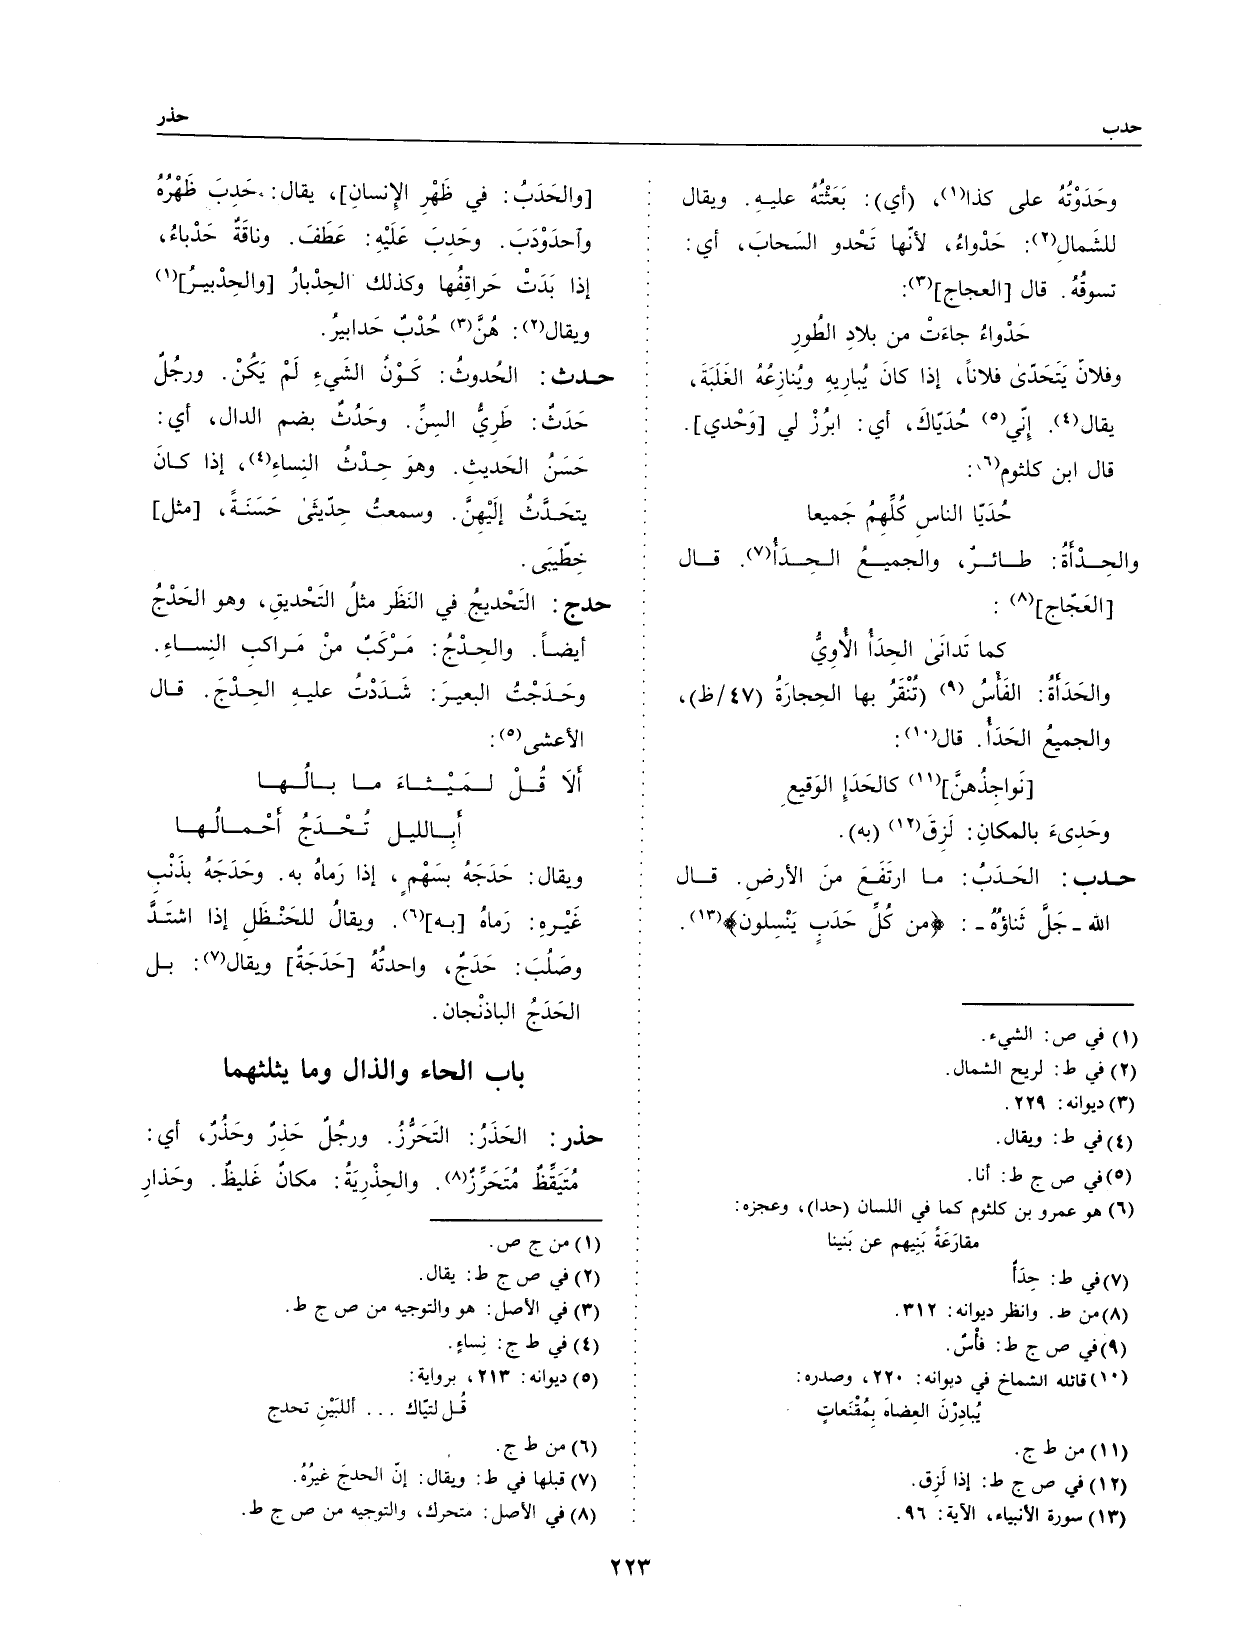 حدب
حذر
وحَدَوْتُهُ على كذا(١)، (أي): بَعَثْتُهُ عليهِ. ويقال
للشَمالِ(٢): حَدْواءُ، لأنّها تَحْدو السَحابَ، أي:
تسوقُهُ. قال [العجاج](٣):
حَدْواءُ جاءَتْ من بلادِ الطُورِ
وفلانٌ يَتَحَدّىٰ فلاناً، إذا كانَ يُباريهِ ويُنازِعُهُ الغَلَبَةَ،
يقال(٤). إنّي(٥) حُدَيّاكَ، أي: ابرُزْ لي [وَحْدي].
قال ابن كلثوم(٦):
حُدَيّا الناسِ كُلِّهِمُ جَميعا
والحِـدْأَةُ: طـائـرٌ، والجميـعُ الـحِـدَأُ(٧). قـال
[العَجّاج](٨) :
كما تَدانَىٰ الحِدَأُ الأُويُّ
والحَدَأَةُ: الفَأْسُ (٩) (تُنْقَرُ بها الحِجارَةُ (٤٧/ظ)،
والجميعُ الحَدَأُ. قال(١٠):
[نَواجِذُهنَّ](١١) كالحَدَإِ الوَقيعِ
وحَدِىءَ بالمكانِ: لَزِقَ(١٢) (به).
حـدب: الحَدَبُ: مـا ارتَفَـعَ مـن الأرضِ. قـال
الله ـ جَلَّ ثَناؤهُ ـ : ﴿من كُلِّ حَدَبٍ يَنْسِلون﴾(١٣).
(١) في ص: الشيء.
(٢) في ط: لريح الشمال.
(٣) ديوانه: ٢٢٩.
(٤) في ط: ويقال.
(٥) في ص ج ط: أنا.
(٦) هو عمرو بن كلثوم كما في اللسان (حدا)، وعجزه:
مقارَعَةُ بَنيهم عن بَنينا
(٧) في ط: حِدَأٌ
(٨) من ط. وانظر ديوانه: ٣١٢.
(٩) في ص ج ط: فأْسٌ.
(١٠) قائله الشماخ في ديوانه: ٢٢٠، وصدره:
يُبادِرْنَ العِضاهَ بِمُقْنَعاتٍ
(١١) من ط ج.
(١٢) في ص ج ط: إذا لَزِق.
(١٣) سورة الأنبياء، الآية: ٩٦.
[والحَدَبُ: في ظَهْرِ الإنسانِ]، يقال: حَدِبَ ظَهْرُهُ
وآحدَوْدَبَ. وحَدِبَ عَلَيْهِ: عَطَفَ. وناقَةٌ حَدْباءُ،
إذا بَدَتْ حَراقِفُها وكذلك الحِدْبارُ [والحِدْبيـرُ](١)
ويقال(٢): هُنَّ(٣) حُدْبٌ حَدابيرُ.
حـدث: الحُدوثُ: كَوْنُ الشَيءِ لَمْ يَكُنْ. ورجُلٌ
حَدَثٌ: طَريُّ السِنِّ. وحَدُثٌ بضم الدال، أي:
حَسَنُ الحَديثِ. وهوَ حِدْثُ النِساءِ(٤)، إذا كـانَ
يتحَدَّثُ إلَيْهِنَّ. وسمعتُ حِدّيثَىٰ حَسَنَـةً، [مثل]
خِطّيبَى.
حدج: التَحْديجُ في النَظَرِ مثلُ التَحْديقِ، وهو الحَدْجُ
أيضاً. والحِـدْجُ: مَـرْكَبٌ مـنْ مَـراكبِ النِسـاءِ.
وحَدَجْتُ البعيـرَ: شَـدَدْتُ عليـهِ الحِـدْجَ. قـال
الأعشى(٥):
أَلَا قُـلْ لـمَيْـثـاءَ مـا بـالُـهـا
أَبِـاللَيـلِ تُـحْـدَجُ أَحْـمـالُـهـا
ويقال: حَدَجَهُ بسَهْمٍ، إذا رَماهُ به. وحَدَجَهُ بذَنْبِ
غَيْـرِهِ: رَماهُ [بـه](٦). ويقالُ للحَنْـظَلِ إذا اشتَـدَّ
وصَلُبَ: حَدَجٌ، واحدتُهُ [حَدَجَةٌ] ويقال(٧): بـل
الحَدَجُ الباذنْجان.
باب الحاء والذال وما يثلثهما
حذر: الحَذَرُ: التَحَرُّزُ. ورجُلٌ حَذِرٌ وحَذُرٌ، أي:
مُتَيَقِّظٌ مُتَحَرِّزٌ(٨). والحِذْرِيَةُ: مكانٌ غَليظٌ. وحَذارِ
(١) من ج ص.
(٢) في ص ج ط: يقال.
(٣) في الأصل: هو والتوجيه من ص ج ط.
(٤) في ط ج: نِساءٍ.
(٥) ديوانه: ٢١٣، برواية:
قُـل لتيّاك ... أللبَيْنِ تحدج
(٦) من ط ج.
(٧) قبلها في ط: ويقال: إنّ الحدجَ غيرُهُ.
(٨) في الأصل: متحرك، والتوجيه من ص ج ط.
٢٢٣